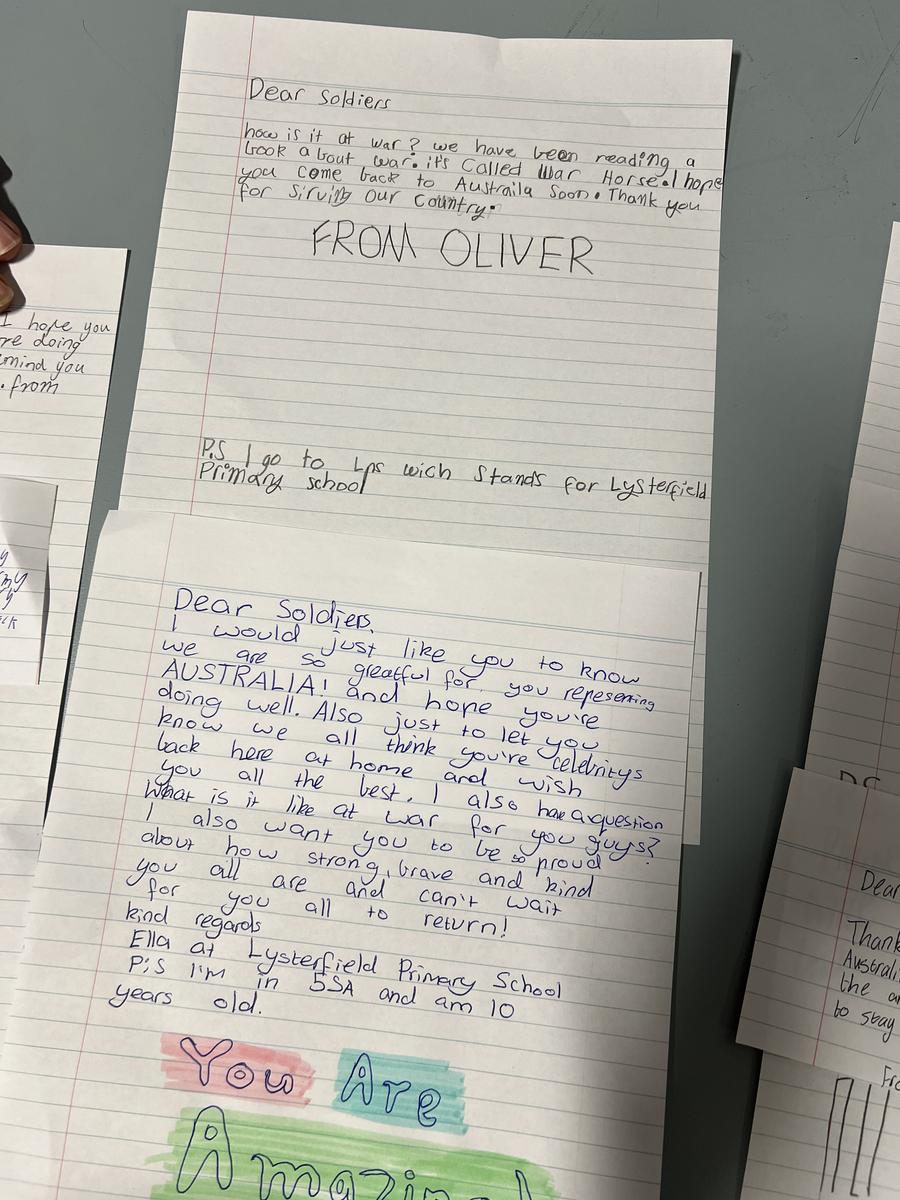 Dear Soldiers
how is it at war? we have been reading a
book about war. it's Called War Horse. I hope
you come back to Austraila soon. Thank you
for sirving our country.
FROM OLIVER
P.S I go to Lps wich stands for Lysterfield
Primary school
I hope you
re doing
mind you
. from
Dear Soldiers,
I would just like you to know
we are so greatful for you repesenting
AUSTRALIA! and hope you're
doing well. Also just to let you
know we all think you're celebritys
back here at home and wish
you all the best. I also have a question
What is it like at war for you guys?
I also want you to be so proud
about how strong, brave and kind
you all are and can't wait
for you all to return!
kind regards
Ella at Lysterfield Primary School
P;S I'm in 5SA and am 10
years old.
You Are
Amazing!
Dear
Thank
Australi
the ar
to stay
Fro